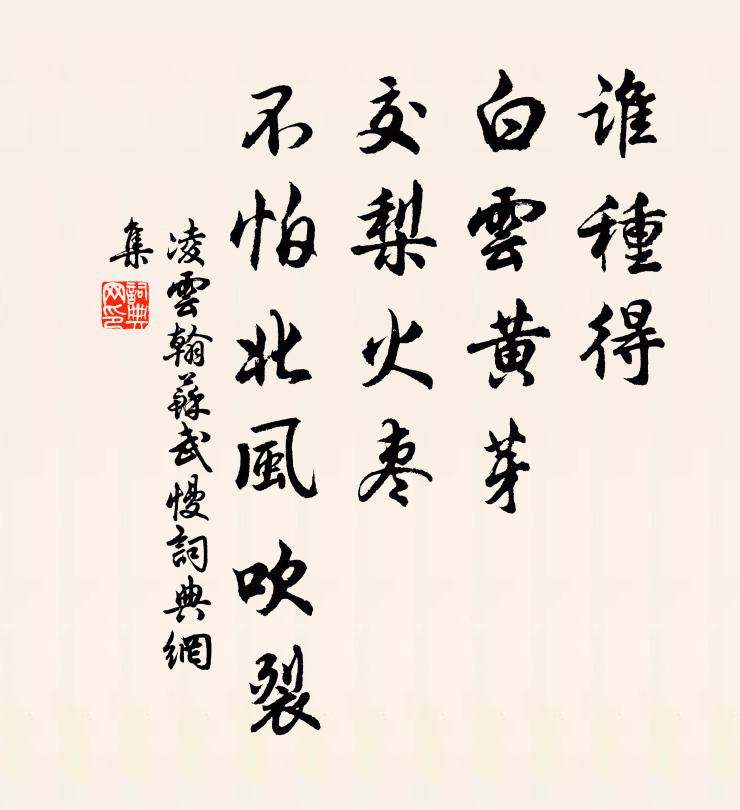 誰種得
白雲黃芽
交梨火枣
不怕北風吹裂
凌雲翰蘇武慢詞典網
集
詞典
网印